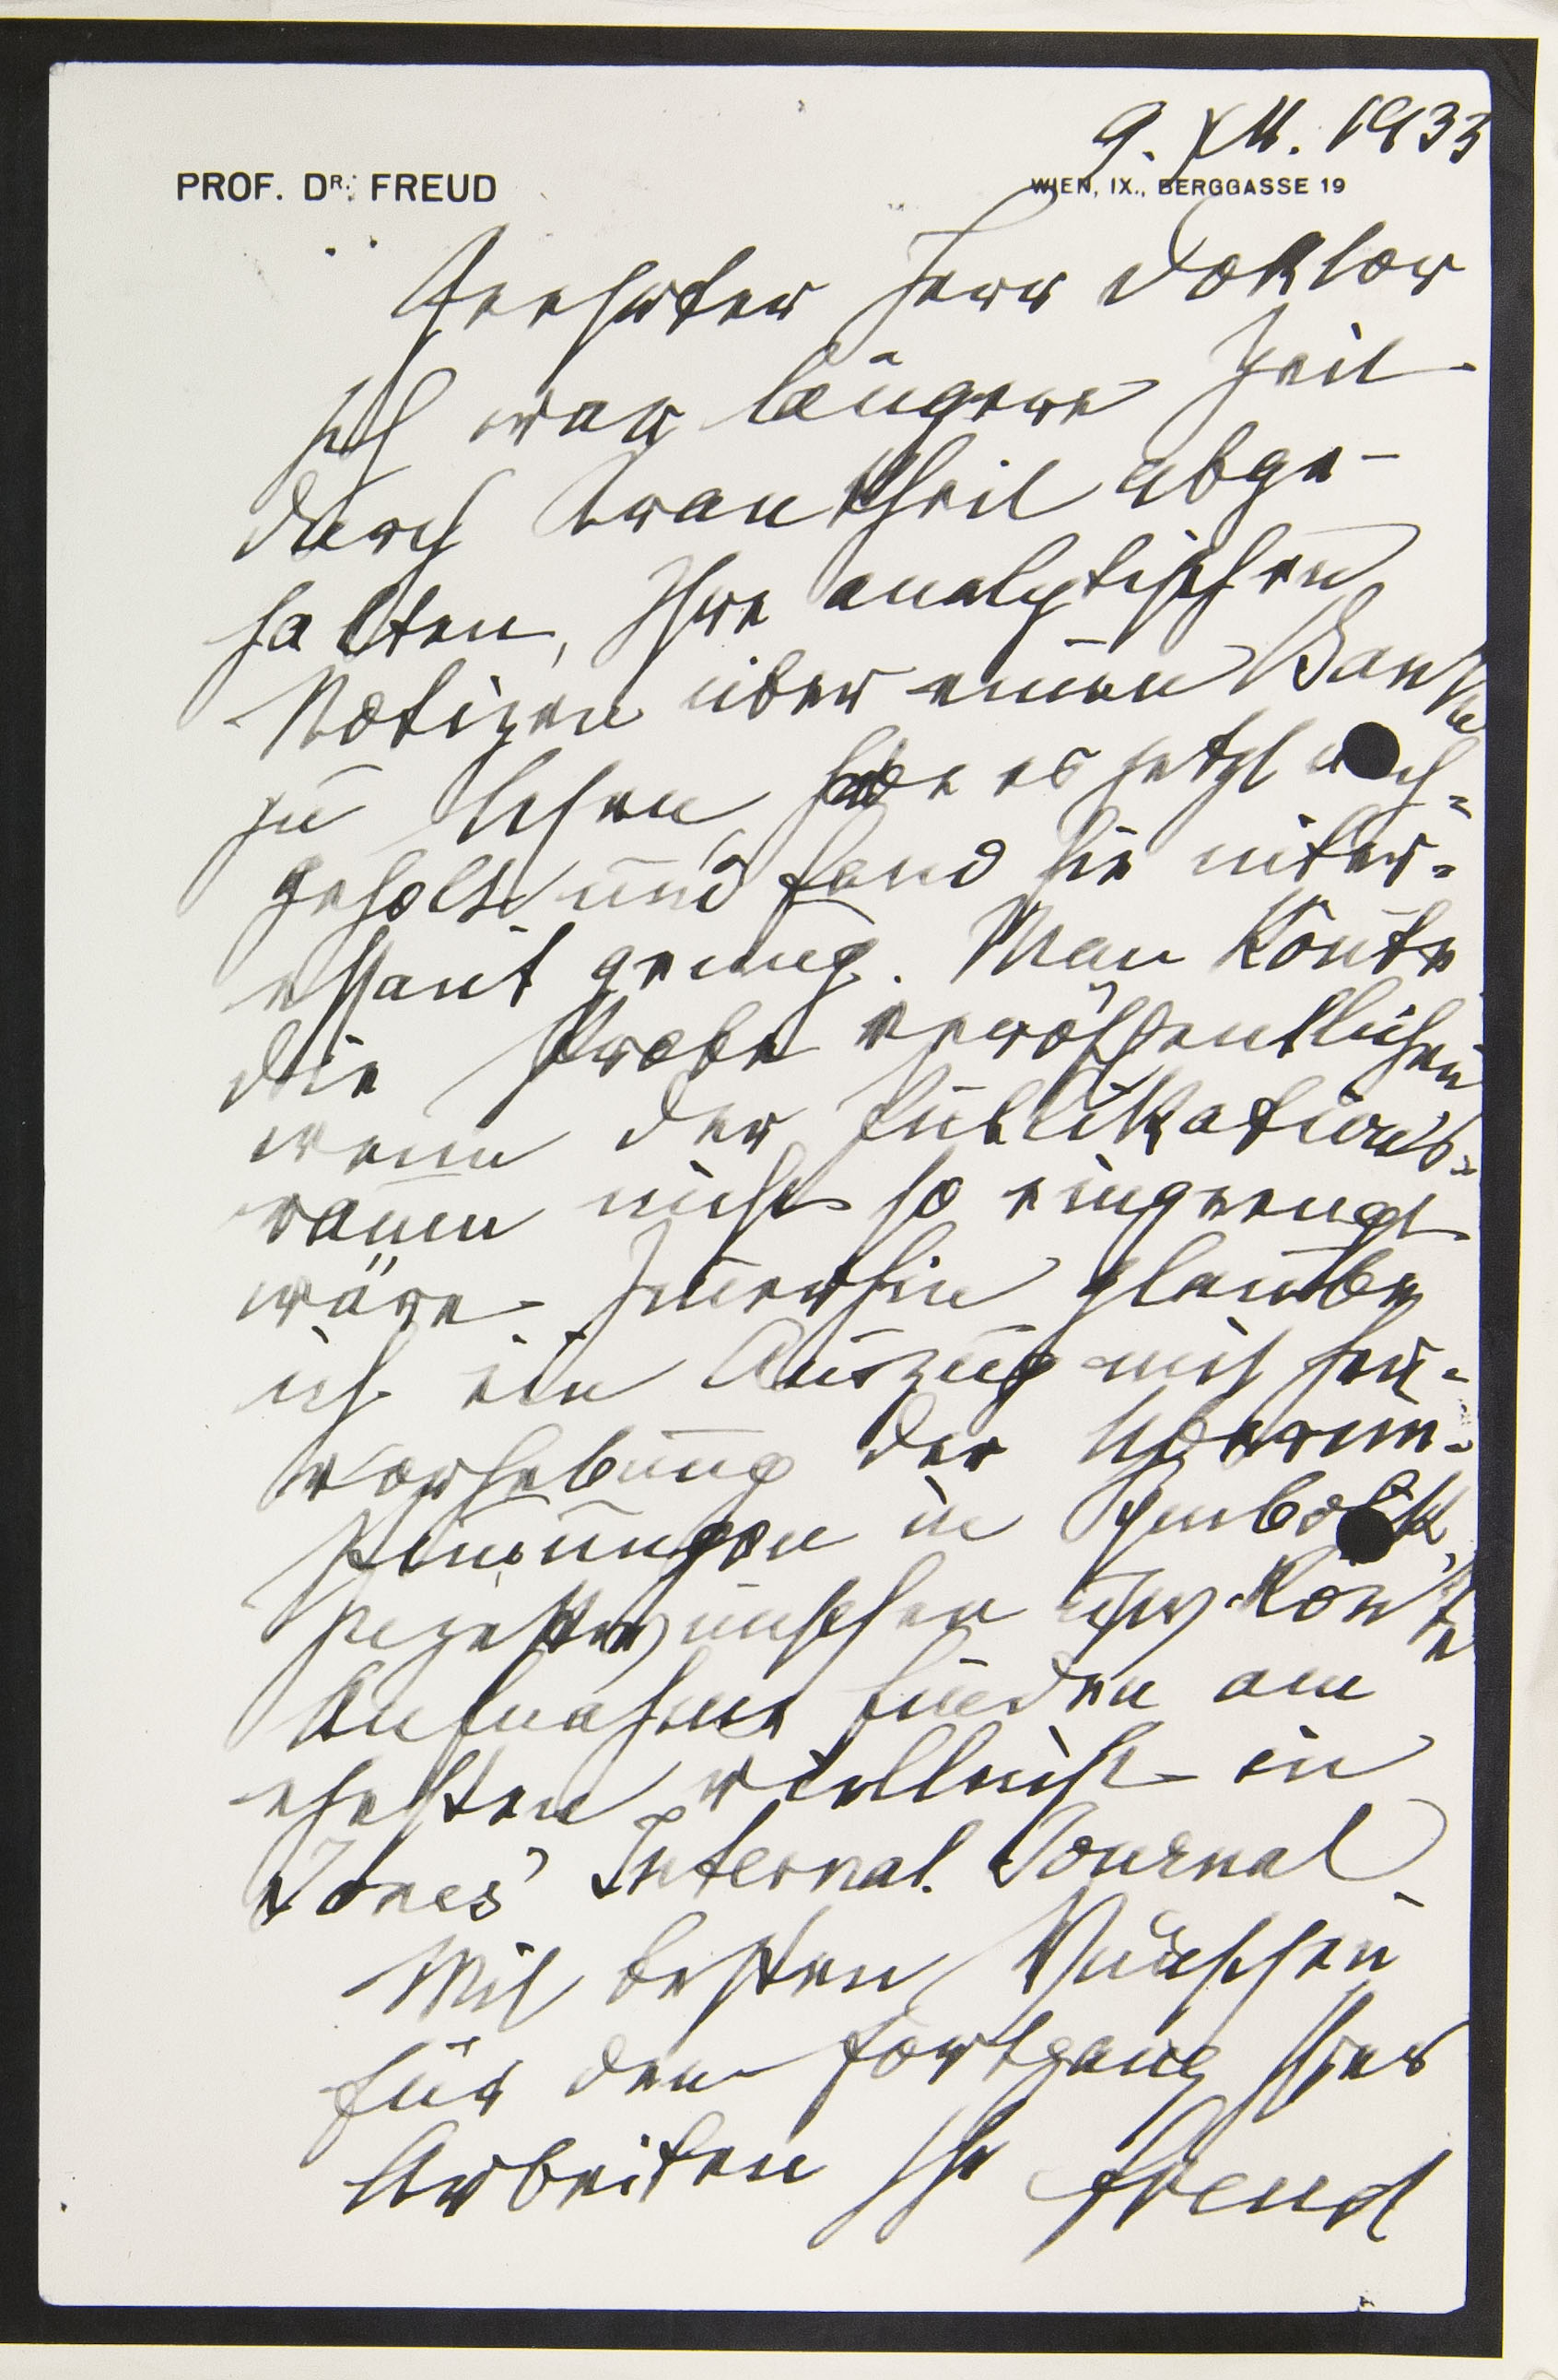 9. XII. 1933
PROF. DR. FREUD
WIEN, IX., BERGGASSE 19
Geehrter Herr Doktor
Ich war längere Zeit
durch Krankheit abge-
halten, Ihre analytischen
Notizen über einen Bantu
zu lesen, habe es jetzt nach-
geholt und fand sie inter-
essant genug. Man könnte
die Probe veröffentlichen
wenn der Publikations-
raum nicht so eingeengt
wäre. Immerhin glaube
ich ein Auszug mit Her-
vorhebung der Überein-
stimmungen in Symbolik,
könnte
Aufnahme finden am
ehesten vielleicht in
Jones' Internat. Journal.
Mit besten Wünschen
für den Fortgang Ihrer
Arbeiten Ihr Freud